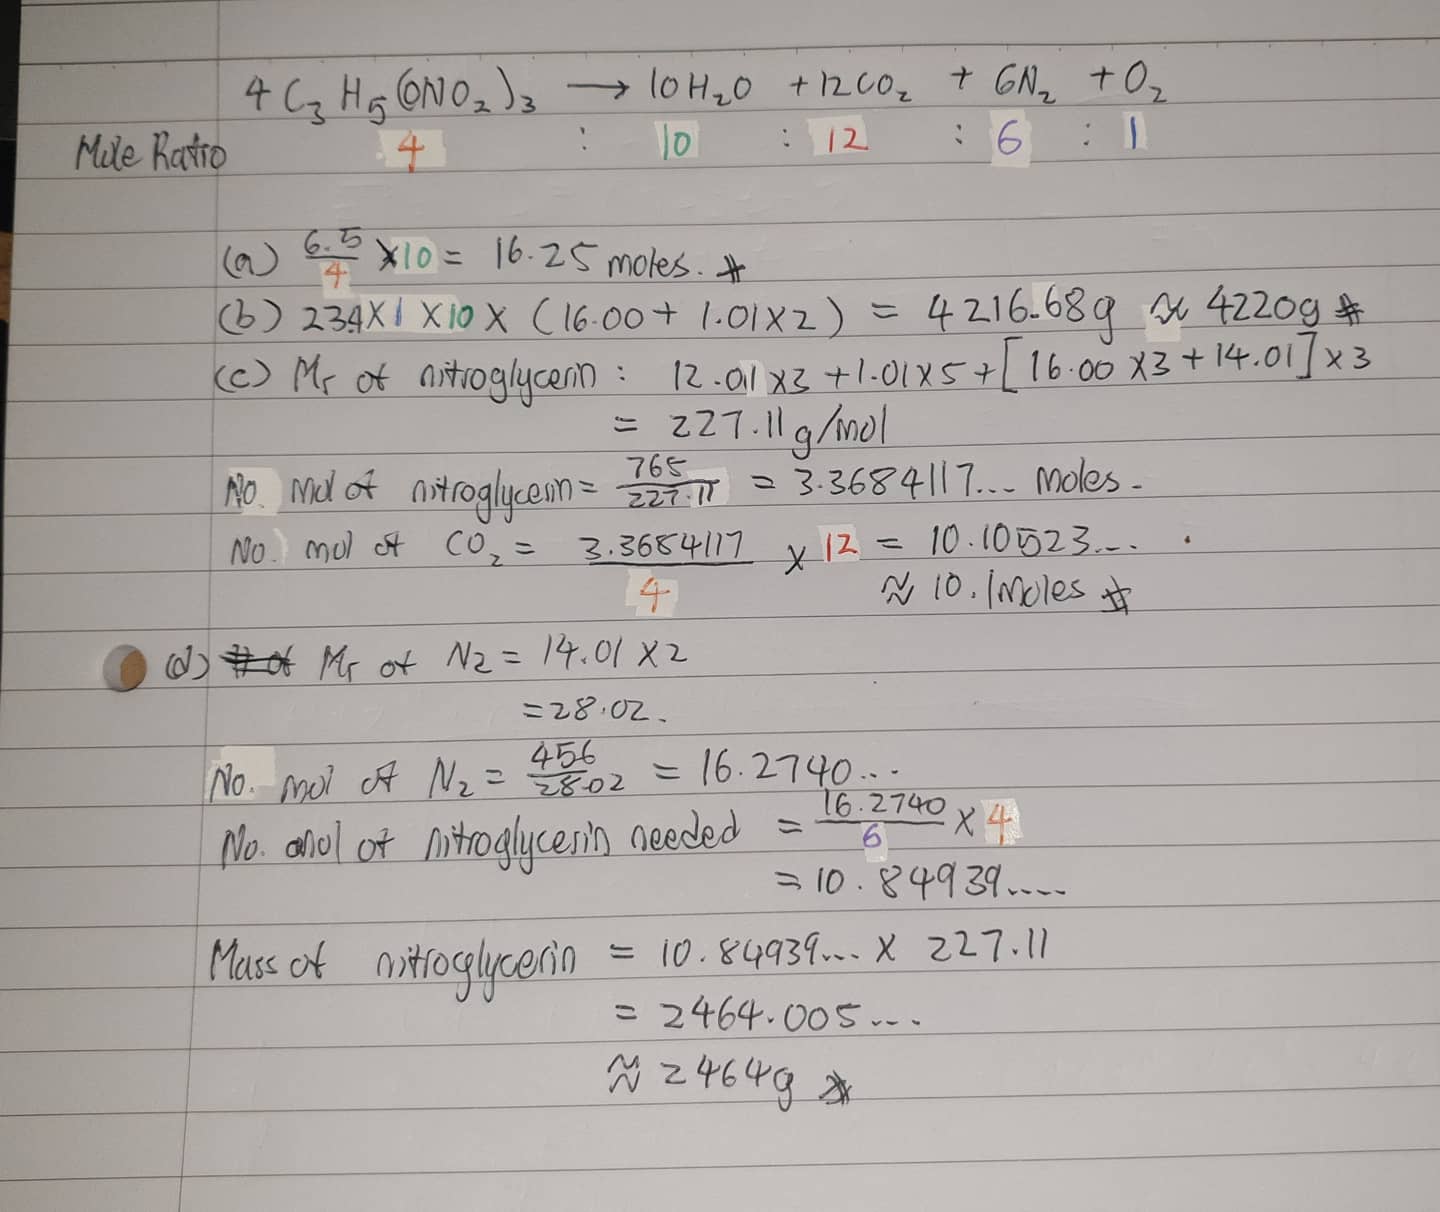 4C₃H₅(ONO₂)₃ → 10H₂O + 12CO₂ + 6N₂ + O₂
Mole Ratio 4 : 10 : 12 : 6 : 1
(a) 6.5/4 × 10 = 16.25 moles. #
(b) 23.4 × 1 × 10 × (16.00 + 1.01 × 2) = 4216.68g ≈ 4220g #
(c) Mr of nitroglycerin : 12.01 × 3 + 1.01 × 5 + [16.00 × 3 + 14.01] × 3
= 227.11 g/mol
No. mol of nitroglycerin = 765/227.11 = 3.3684117... moles.
No. mol of CO₂ = 3.3684117/4 × 12 = 10.10523...
≈ 10.1moles #
(d) Mr of N₂ = 14.01 × 2
= 28.02.
No. mol of N₂ = 456/28.02 = 16.2740...
No. mol of nitroglycerin needed = 16.2740/6 × 4
= 10.84939....
Mass of nitroglycerin = 10.84939... × 227.11
= 2464.005...
≈ 2464g #